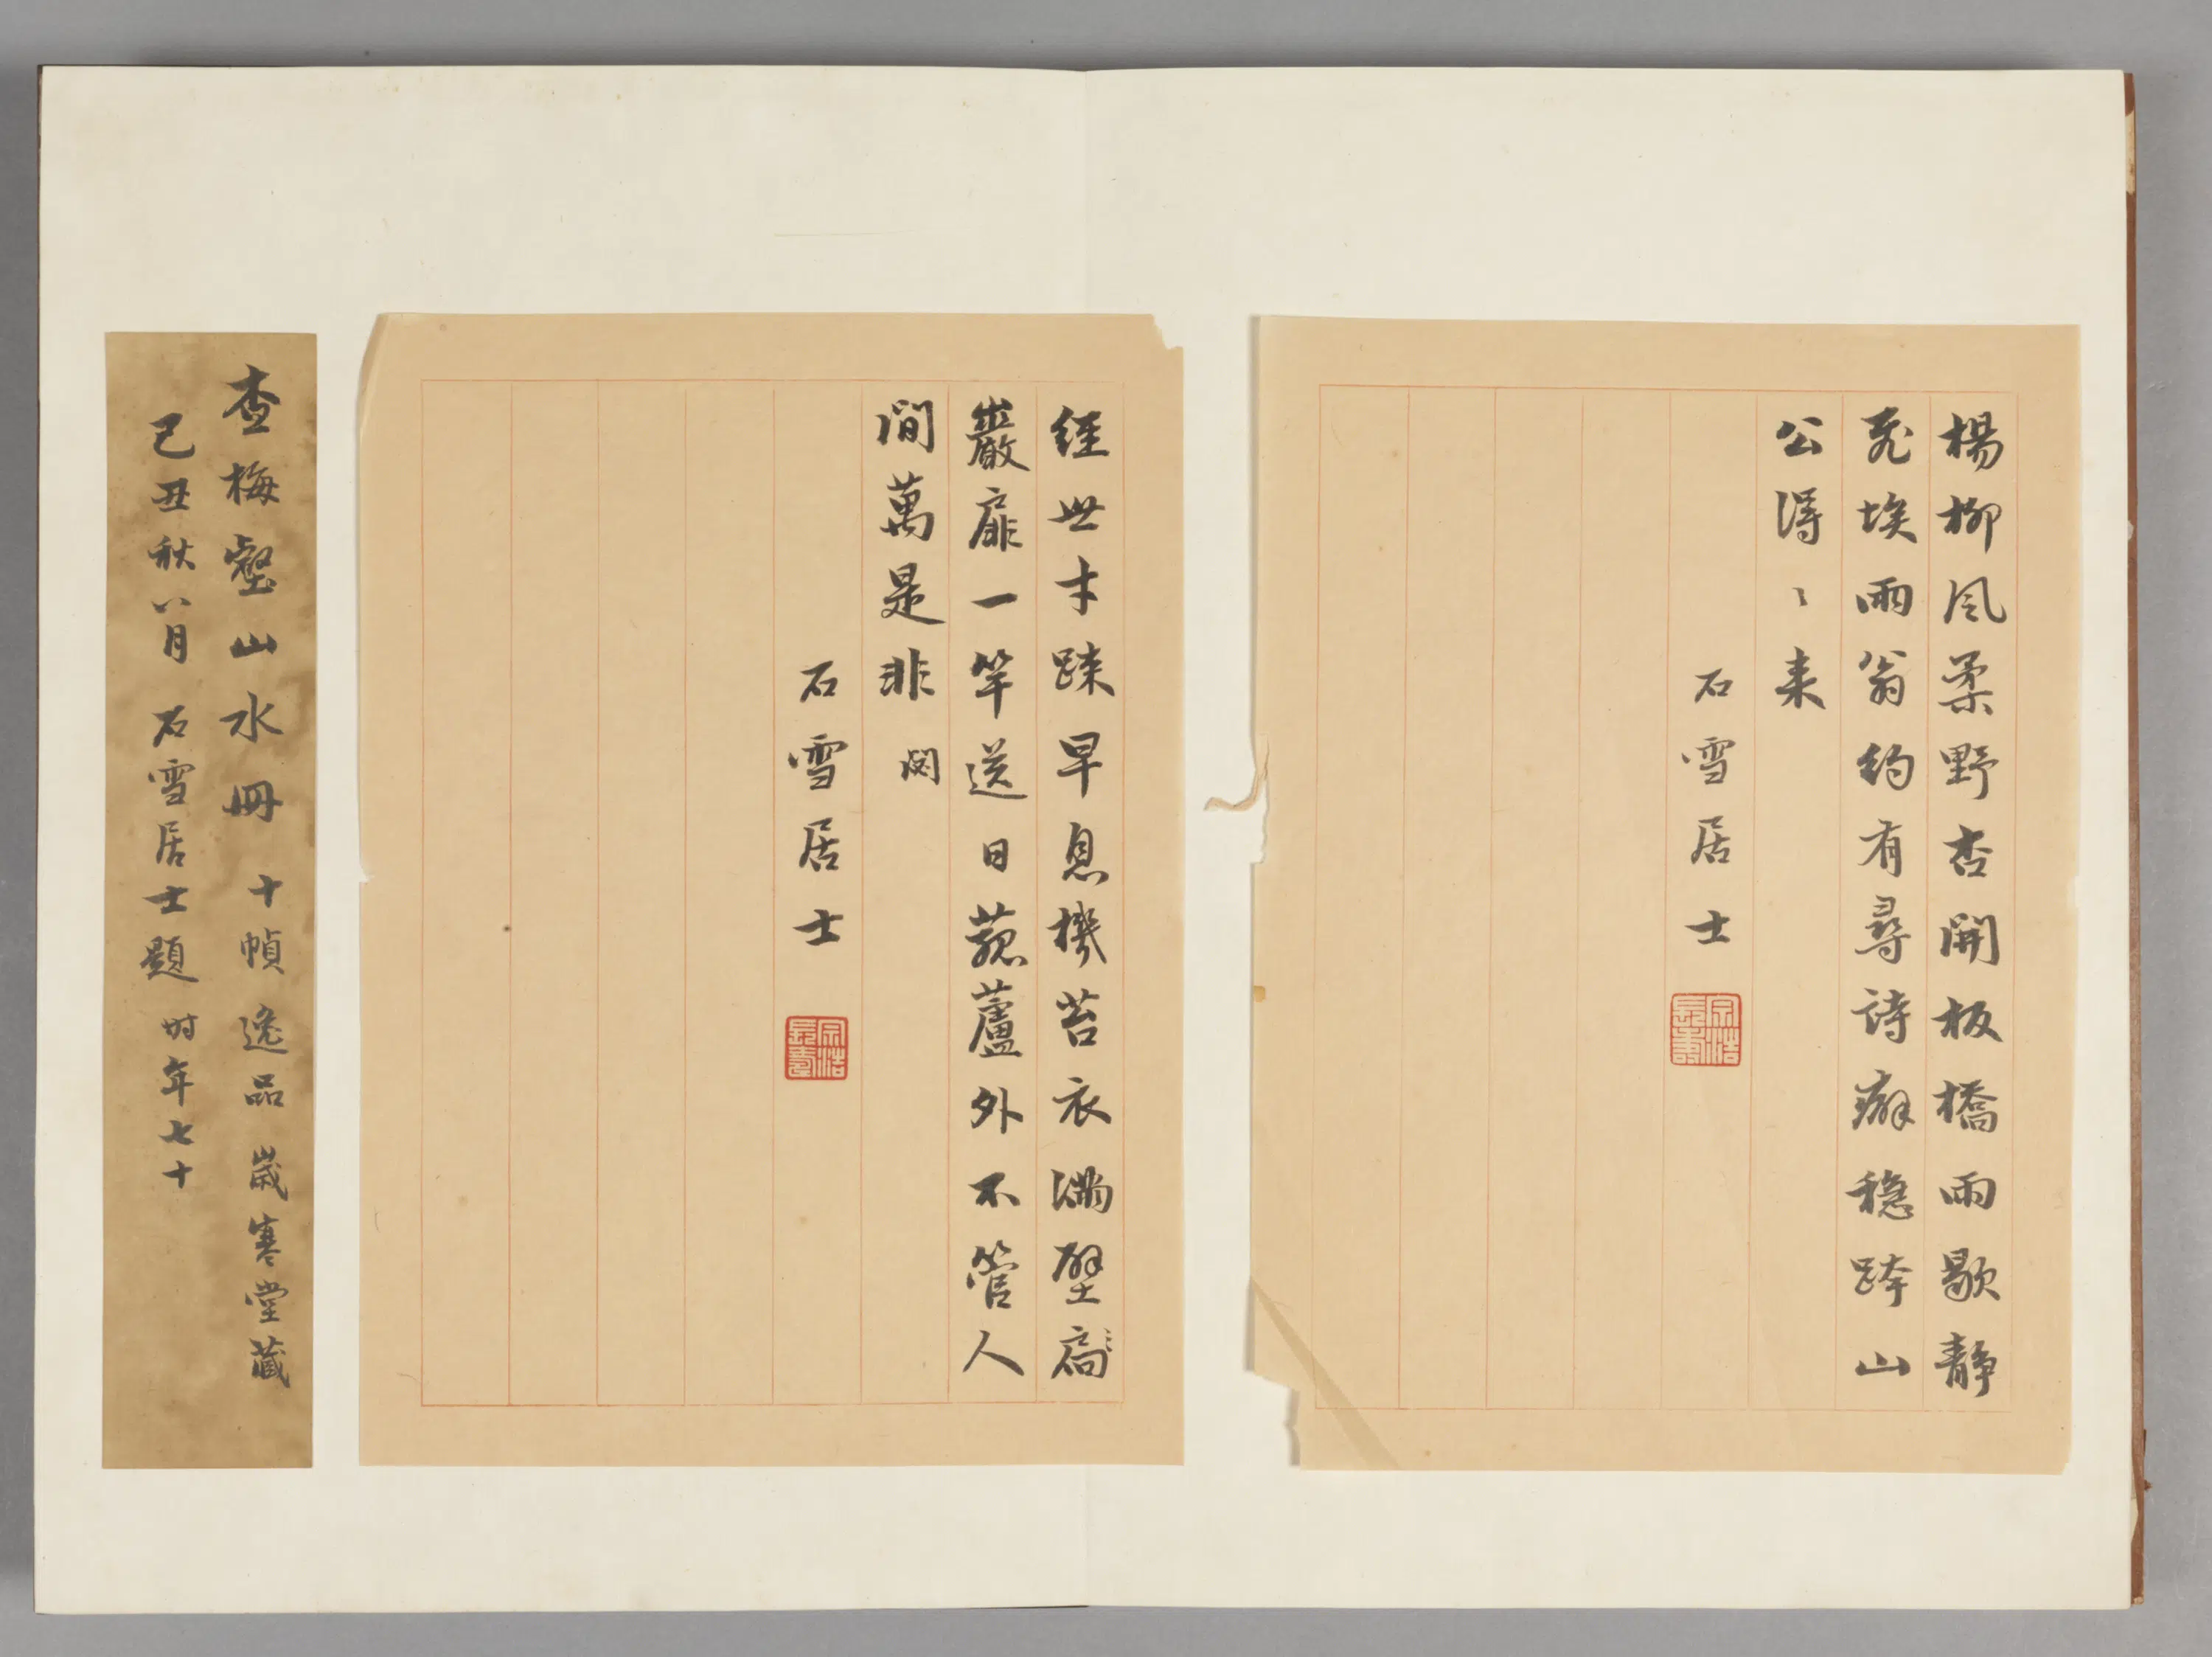 楊柳風柔野杏開板橋雨歇靜
飛埃兩翁約有尋詩癖穩跨山
公得〻來
石雪居士
宗浩長壽
經世才踈早息機苔衣滿壁扃
巖扉一竿送日菰蘆外不管人
間萬是非 閟
石雪居士
宗浩長壽
查梅壑山水冊 十幀逸品 歲寒堂藏
己丑秋八月 石雪居士題 时年七十